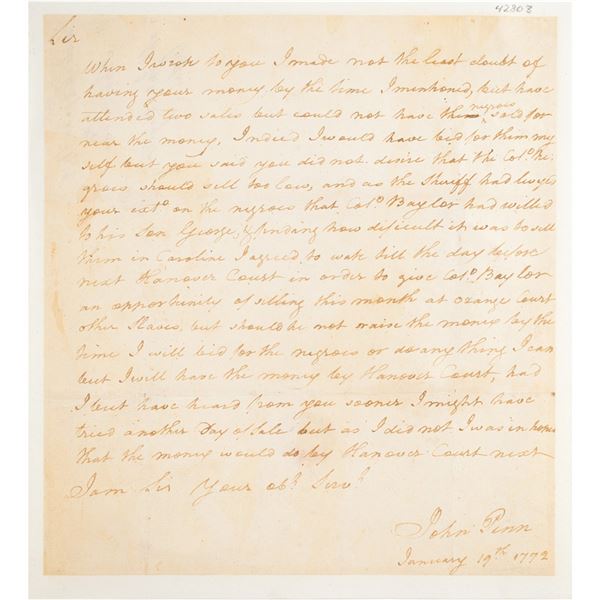 42303
Sir
When I wrote to you I made not the least doubt of
having your money by the time I mentioned, but have
attended two sales but could not have the negroes sold for
near the money. Indeed I would have bid for them my
self but you said you did not desire that the Colo. Ne-
groes should sell too low, and as the Sheriff had levyed
your exto. on the negroes that Colo. Baylor had willed
to his Son George, & finding how dificult it was to sell
them in Caroline I agreed to wate till the day before
next Hanover Court in order to give Colo. Baylor
an opportunity of selling this month at orange Court
other Slaves, but should he not raise the money by the
time I will bid for the negroes or do any thing I can
but I will have the money by Hanover Court, had
I but have heard from you sooner I might have
tried another Day of Sale but as I did not I was in hopes
that the money would do by Hanover Court next
I am Sir Your obt. Servt.
John Penn
January 19th 1772